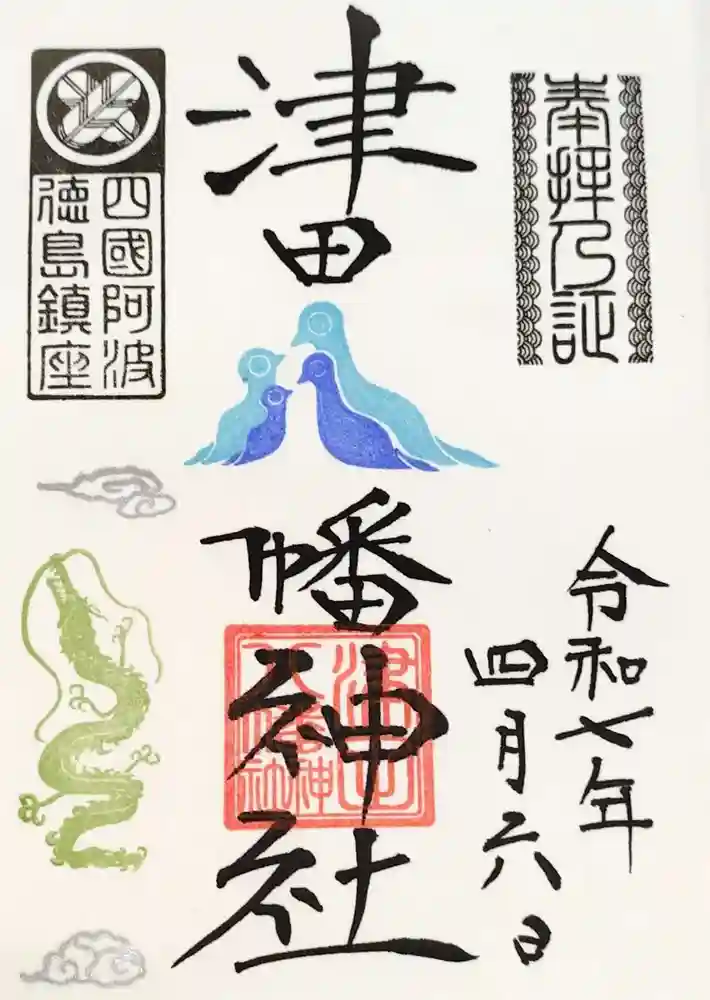 奉拝乃証
令和七年
四月六日
津田
幡神社
津田
八幡神社
四國阿波
徳島鎮座